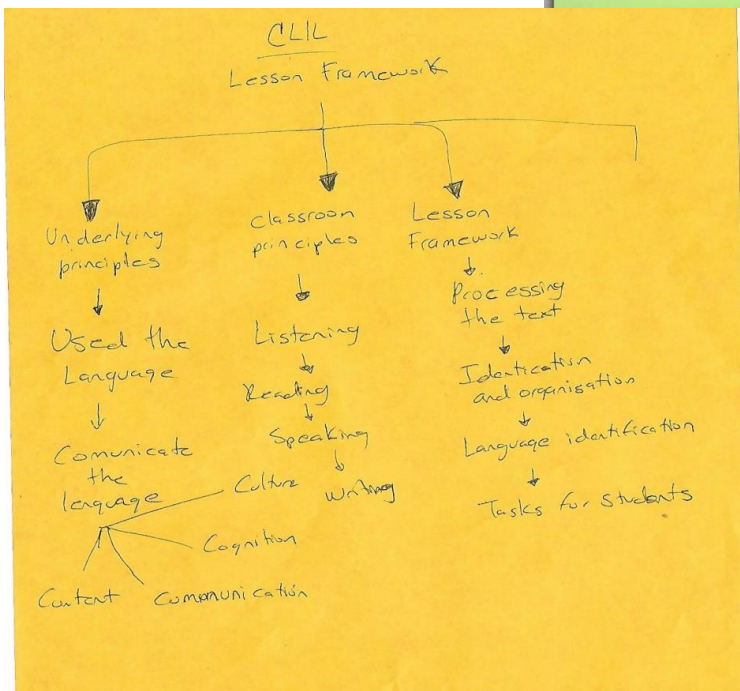 CLIL
Lesson Framework
Underlying
principles
Used the
Language
Comunicate
the
lenguage
Culture
Cognition
Communication
Content
Classroom
principles
Listening
Reading
Speaking
Writing
Lesson
Framework
Processing
the text
Identication
and organisation
Language identification
Tasks for Students